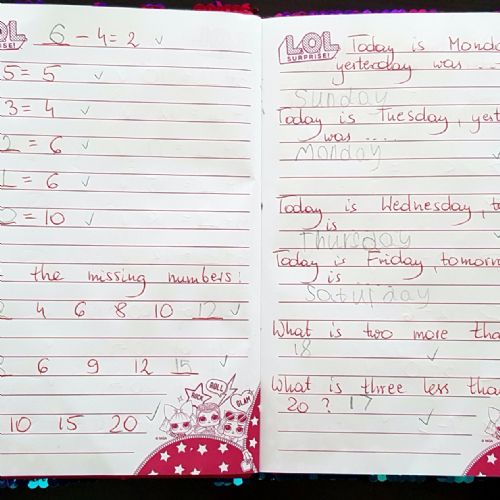 LOL
SURPRISE!
6 - 4 = 2 ✓
5 = 5 ✓
3 = 4 ✓
2 = 6 ✓
1 = 6 ✓
= 10 ✓
the missing numbers:
4 6 8 10 12 ✓
6 9 12 15 ✓
10 15 20 ✓
ROCK
ROLL
GLAM
© MGA
LOL
SURPRISE!
Today is Monda
yesterday was ....
Sunday
Today is Tuesday, yest
was ....
Monday
Today is Wednesday, to
is
Thursday
Today is Friday, tomorro
is ...
Saturday
What is two more tha
18 ✓
What is three less tha
20 ? 17 ✓
© MGA